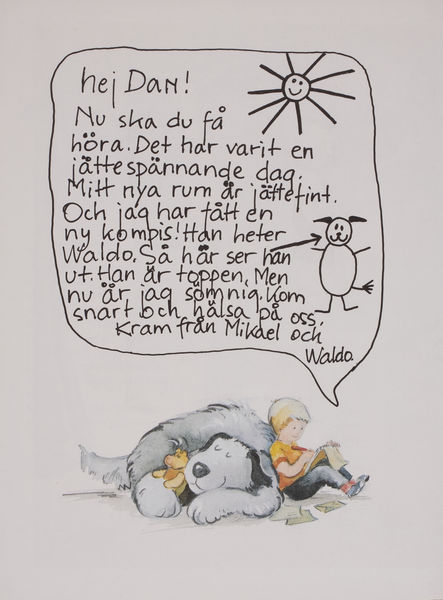 hej Dan!
Nu ska du få
höra. Det har varit en
jättespännande dag.
Mitt nya rum är jättefint.
Och jag har fått en
ny kompis! Han heter
Waldo. Så här ser han
ut. Han är toppen. Men
nu är jag sömnig. Kom
snart och hälsa på oss.
Kram från Mikael och
Waldo.